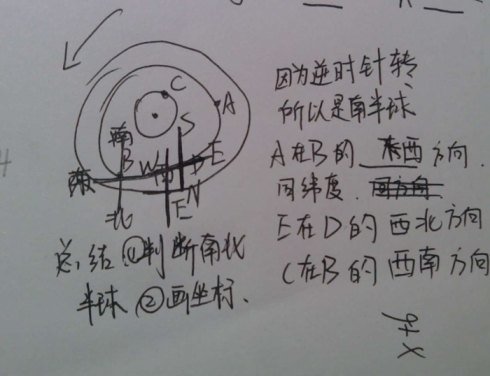 因为逆时针转
所以是南半球
A在B的 东西 方向.
同纬度.
E在D的 西北方向
C在B的 西南方向
C
A
S
南
B
W
D
E
N
北
E
总结 ①判断南北
半球 ②画坐标.